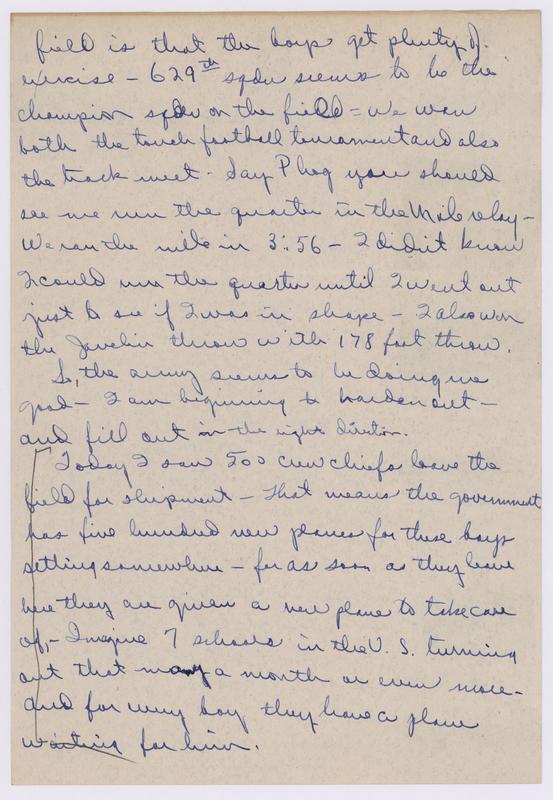 field is that the boys get plenty of
exercise - 629th sqdn seems to be the
champion sqdn on the field - we won
both the touch football tournament and also
the track meet - Say Phog you should
see me run the quarter in the Mile relay -
We ran the mile in 3:56 - I didn't know
I could run the quarter until I went out
just to see if I was in shape - I also won
the Javelin throw with 178 foot throw.
So, the army seems to be doing me
good - I am beginning to harden out -
and fill out in the right direction.
Today I saw 500 crew chiefs leave the
field for shipment - that means the government
has five hundred new planes for these boys
setting somewhere - for as soon as they leave
here they are given a new plane to take care
of, - Imagine 7 schools in the U.S. turning
out that many a month or even more -
and for every boy they have a plane
waiting for him.